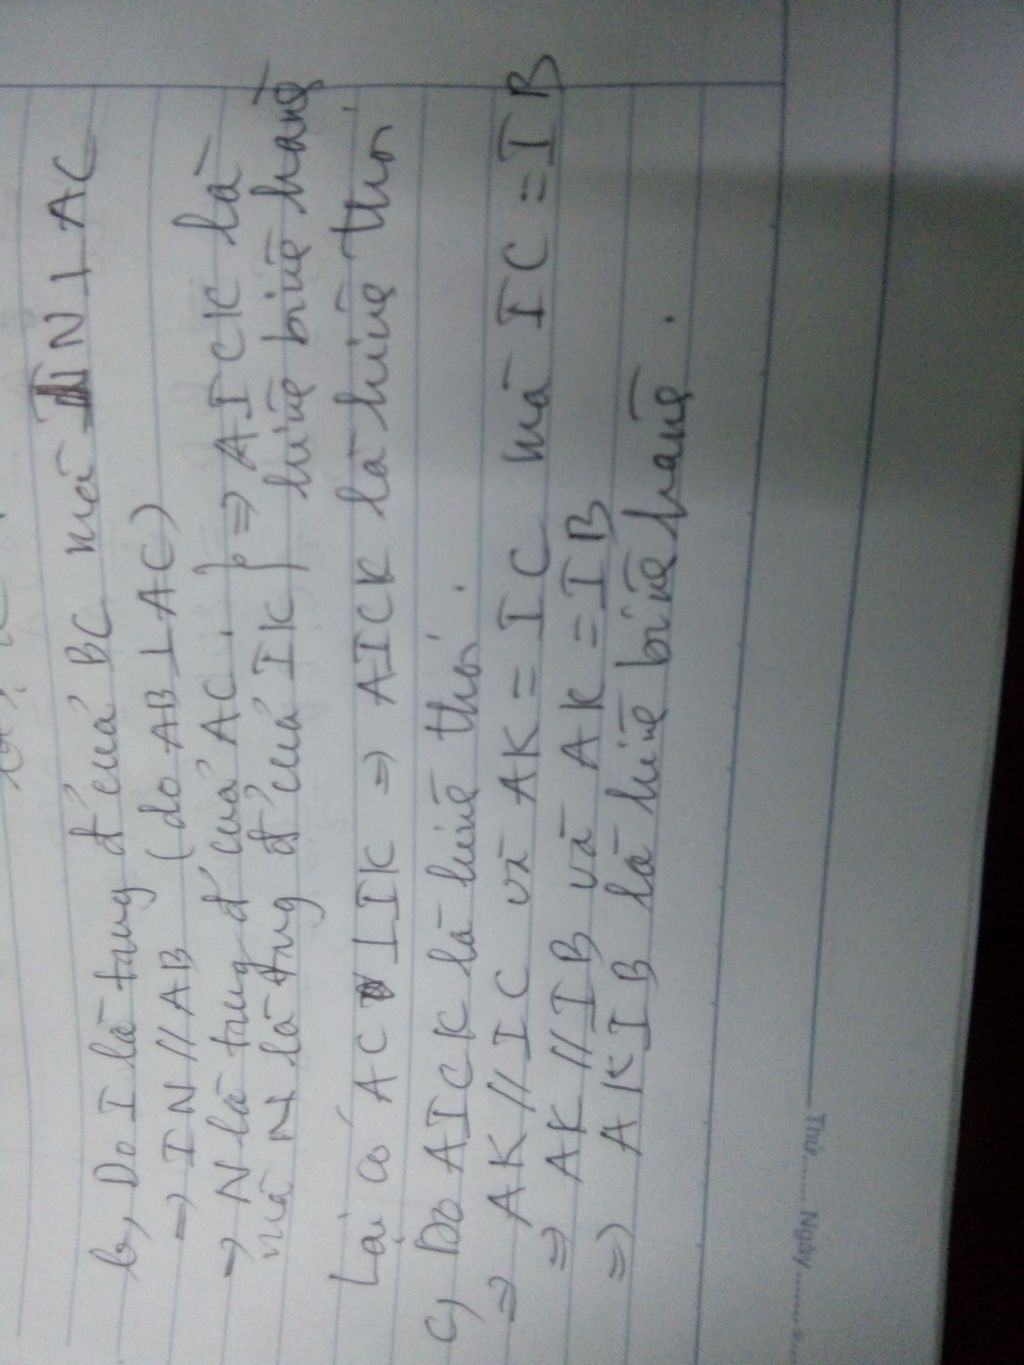 b, Do I là trung đ' của BC mà IN ⊥ AC
⇒ IN // AB (do AB ⊥ AC)
⇒ N là trung đ' của AC.
mà N là trung đ' của IK } ⇒ AICK là
hình bình hành
Lại có AC ⊥ IK ⇒ AICK là hình thoi
c, Do AICK là hình thoi.
⇒ AK // IC và AK = IC mà IC = IB
⇒ AK // IB và AK = IB
⇒ AKIB là hình bình hành.
Thứ ........ Ngày ........